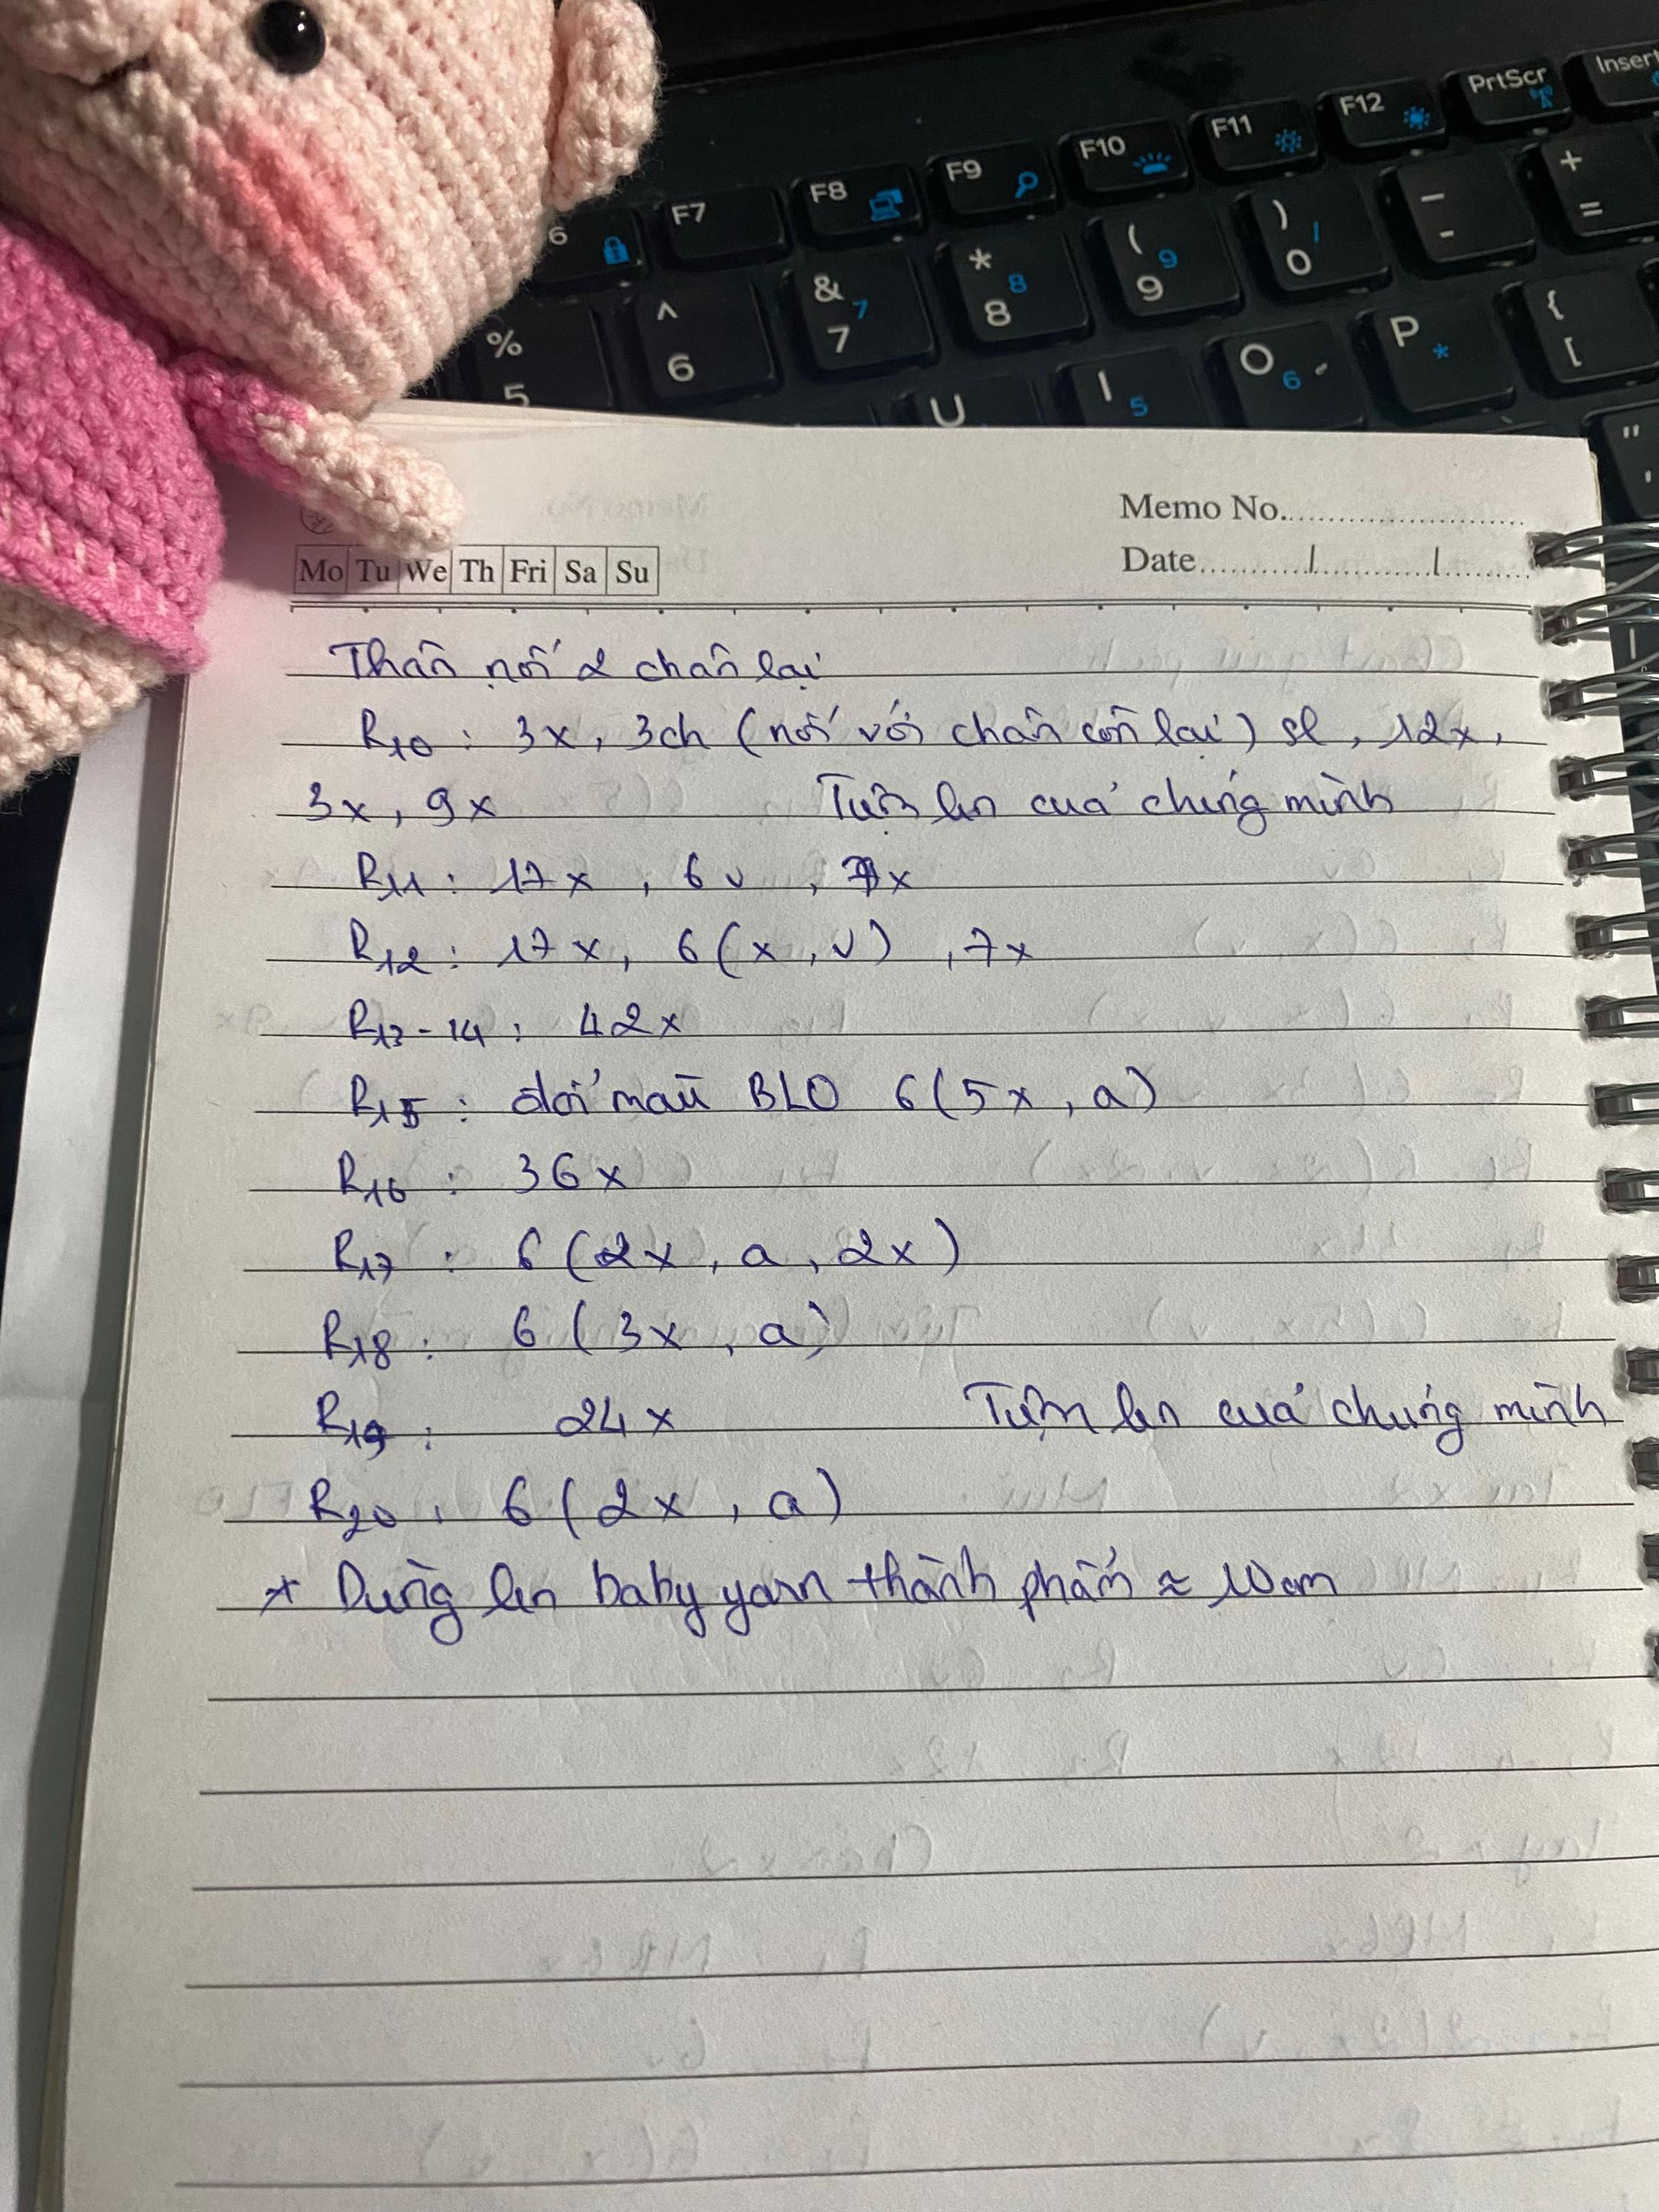 6
F7
F8
F9
F10
F11
F12
PrtScr
Insert
%
5
^
6
&
7
7
*
8
8
(
9
9
)
0
/
-
+
=
U
I
5
O
6
P
*
{
[
"
'
Memo No.
Date
Mo Tu We Th Fri Sa Su
Thân nối 2 chân lại
R10 : 3x, 3ch (nối với chân còn lại) sl, 12x,
3x, 9x Tiệm len của chúng mình
R11 : 17x, 6v, 7x
R12 : 17x, 6(x, v), 7x
R13-14 : 42x
R15 : đổi màu BLO 6(5x, a)
R16 : 36x
R17 : 6(2x, a, 2x)
R18 : 6(3x, a)
R19 : 24x Tiệm len của chúng mình
R20 : 6(2x, a)
* Dùng len baby yarn thành phẩm ≈ 10cm